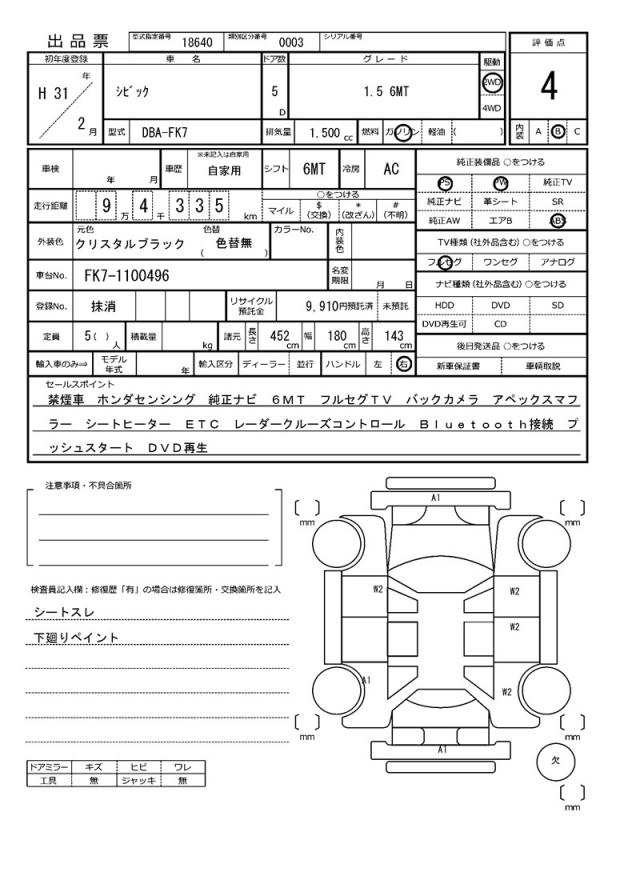 出品票 型式指定番号 18640 類別区分番号 0003 シリアル番号
評価点
4
内装 A B C
初年度登録 車名 ドア数 グレード 駆動
H 31 年 2 月 シビック 5 D 1.5 6MT 2WD 4WD
型式 DBA-FK7 排気量 1.500 cc 燃料 ガソリン 軽油 ( )
車検 年 月 車歴 ※未記入は自家用 自家用 シフト 6MT 冷房 AC
走行距離 9 万 4 千 3 3 5 km ○をつける
マイル $ (交換) * (改ざん) # (不明)
外装色 元色 クリスタルブラック 色替 ( 色替無 ) カラーNo. 内装色
車台No. FK7-1100496 名変期限 月 日
登録No. 抹消 リサイクル預託金 9,910円預託済 未預託
定員 5( ) 人 積載量 kg 諸元 長さ 452 cm 幅 180 cm 高さ 143 cm
輸入車のみ⇒ モデル年式 年 輸入区分 ディーラー 並行 ハンドル 左 右
純正装備品 ○をつける
PS PW 純正TV
純正ナビ 革シート SR
純正AW エアB ABS
TV種類(社外品含む) ○をつける
フルセグ ワンセグ アナログ
ナビ種類(社外品含む) ○をつける
HDD DVD SD
DVD再生可 CD
後日発送品 ○をつける
新車保証書 車輌取説
セールスポイント
禁煙車 ホンダセンシング 純正ナビ 6MT フルセグTV バックカメラ アペックスマフ
ラー シートヒーター ETC レーダークルーズコントロール Bluetooth接続 プ
ッシュスタート DVD再生
注意事項・不具合箇所
検査員記入欄:修復歴「有」の場合は修復箇所・交換箇所を記入
シートスレ
下廻りペイント
ドアミラー キズ ヒビ ワレ
工具 無 ジャッキ 無
[ ] mm A1 [ ] mm
W2 W2
W2
A1 W2
[ ] mm A1 [ ] mm
欠
[ ] mm